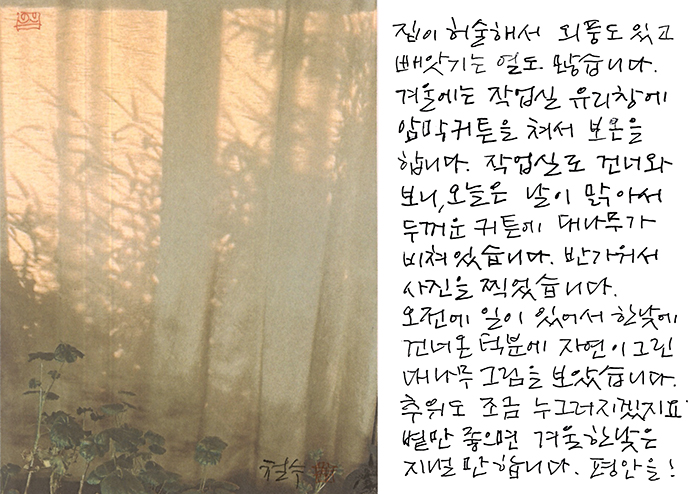 집이 허술해서 외풍도 있고
빼앗기는 열도 많습니다.
겨울에는 작업실 유리창에
암막커튼을 쳐서 보온을
합니다. 작업실로 건너와
보니, 오늘은 날이 맑아서
두꺼운 커튼에 대나무가
비쳐있습니다. 반가워서
사진을 찍었습니다.
오전에 일이 있어서 한낮에
건너온 덕분에 자연이 그린
대나무 그림을 보았습니다.
추위도 조금 누그러지겠지요?
볕만 좋으면 겨울 한낮은
지낼 만 합니다. 평안을!
철수